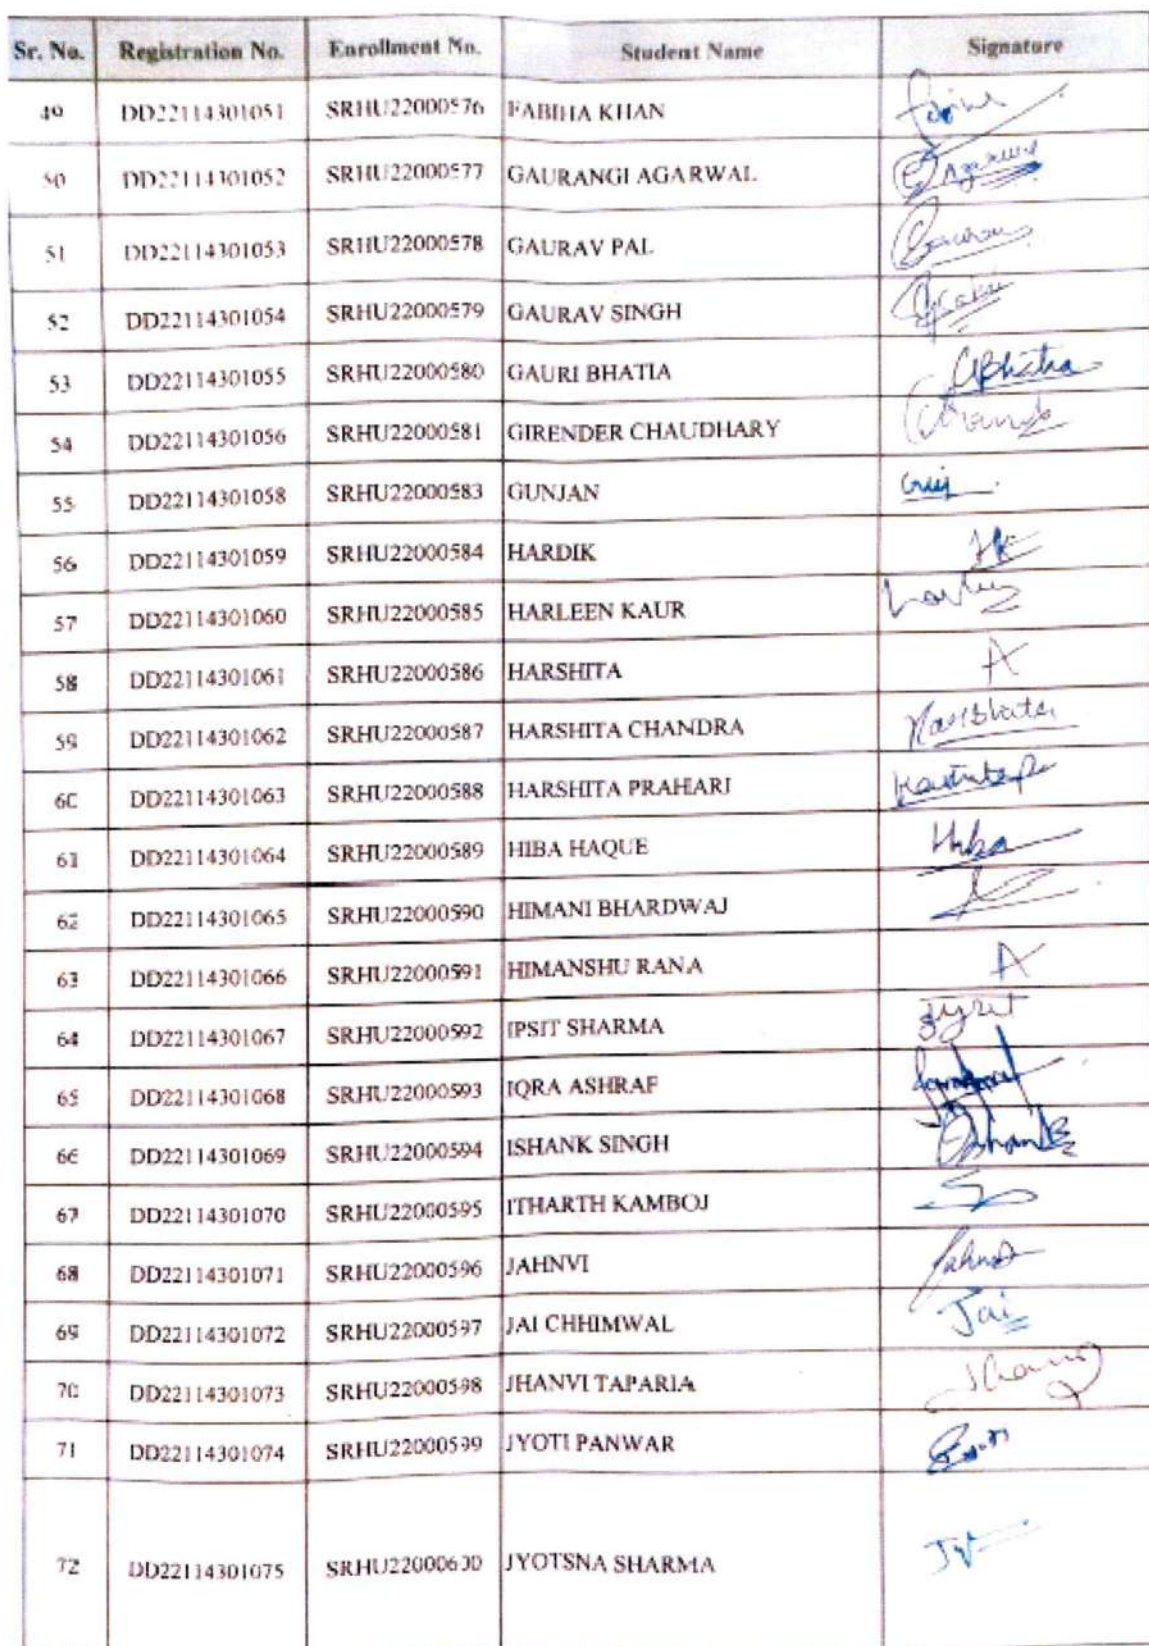 Sr. No. Registration No. Enrollment No. Student Name Signature
49 DD22114301051 SRHU22000576 FABIHA KHAN
50 DD22114301052 SRHU22000577 GAURANGI AGARWAL Agarwal
51 DD22114301053 SRHU22000578 GAURAV PAL
52 DD22114301054 SRHU22000579 GAURAV SINGH
53 DD22114301055 SRHU22000580 GAURI BHATIA GBhatia
54 DD22114301056 SRHU22000581 GIRENDER CHAUDHARY
55 DD22114301058 SRHU22000583 GUNJAN
56 DD22114301059 SRHU22000584 HARDIK
57 DD22114301060 SRHU22000585 HARLEEN KAUR
58 DD22114301061 SRHU22000586 HARSHITA A
59 DD22114301062 SRHU22000587 HARSHITA CHANDRA
60 DD22114301063 SRHU22000588 HARSHITA PRAHARI
61 DD22114301064 SRHU22000589 HIBA HAQUE Hiba
62 DD22114301065 SRHU22000590 HIMANI BHARDWAJ
63 DD22114301066 SRHU22000591 HIMANSHU RANA A
64 DD22114301067 SRHU22000592 IPSIT SHARMA
65 DD22114301068 SRHU22000593 IQRA ASHRAF
66 DD22114301069 SRHU22000594 ISHANK SINGH
67 DD22114301070 SRHU22000595 ITHARTH KAMBOJ
68 DD22114301071 SRHU22000596 JAHNVI
69 DD22114301072 SRHU22000597 JAI CHHIMWAL Jai
70 DD22114301073 SRHU22000598 JHANVI TAPARIA
71 DD22114301074 SRHU22000599 JYOTI PANWAR
72 DD22114301075 SRHU22000600 JYOTSNA SHARMA